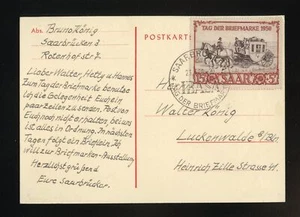 Abs. Bruno König
Saarbrücken 3
Rotenhofstr.
Lieber Walter, Hetty u. Hannes
Zum Tag der Briefmarke benutze
ich die Gelegenheit Euch ein
paar Zeilen zu senden. Post von
Euch noch nicht erhalten, bei uns
ist alles in Ordnung. In nächsten
Tagen folgt ein Brieflein. Ich
will zur Briefmarken-Ausstellung
Herzlichst grüssend
Eure Saarbrücker.
POSTKARTE
TAG DER BRIEFMARKE 1950
15 SAAR 5
SAARBRÜCKEN
TAG DER BRIEFMARKE
Walter König
Luckenwalde b/Bln.
Heinrich Zille Strasse 41